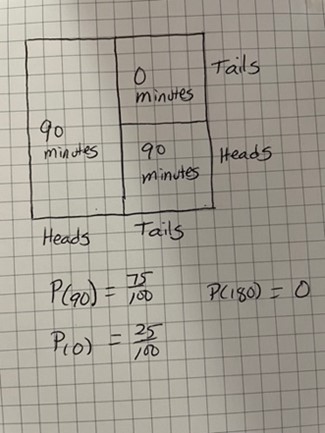 0
minutes
Tails
90
minutes
90
minutes
Heads
Heads
Tails
P(90) = 75/100
P(180) = 0
P(0) = 25/100